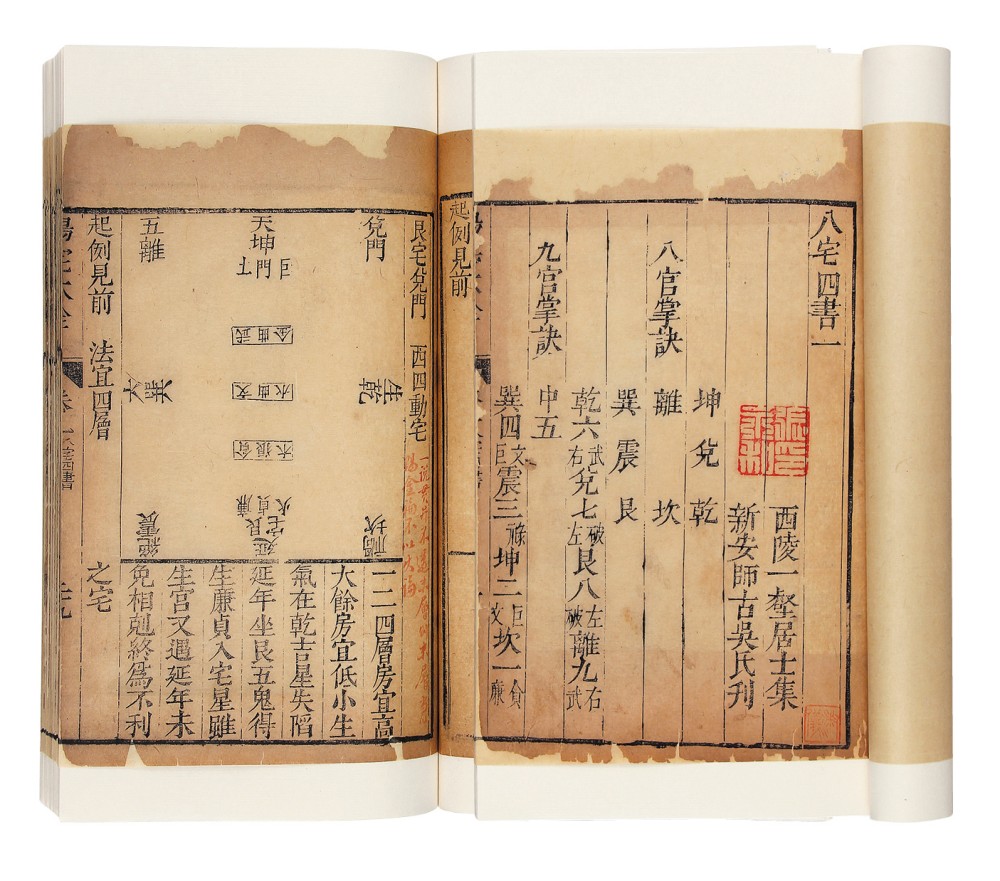 八宅四書一
西陵一壑居士集
新安師古吳氏刊
坤 兌 乾
八宮掌訣 離 坎
巽 震 艮
乾六 武右 兌七 破左 艮八 左破 離九 右武
九宮掌訣 中五
巽四 文巨 震三 祿 坤二 巨文 坎一 貪廉
起例見前
艮宅兌門 西四動宅
兌門
生乾
禍坎
天坤
門
巨
土
武曲金
文曲水
貪狼木
廉貞火
延艮宅
五離
六
絕震
一二四層房宜高
大餘房宜低小生
氣在乾吉星失陷
延年坐艮五鬼得
生廉貞入宅星雖
生宮又遇延年未
免相剋終爲不利
起例見前 法宜四層 之宅